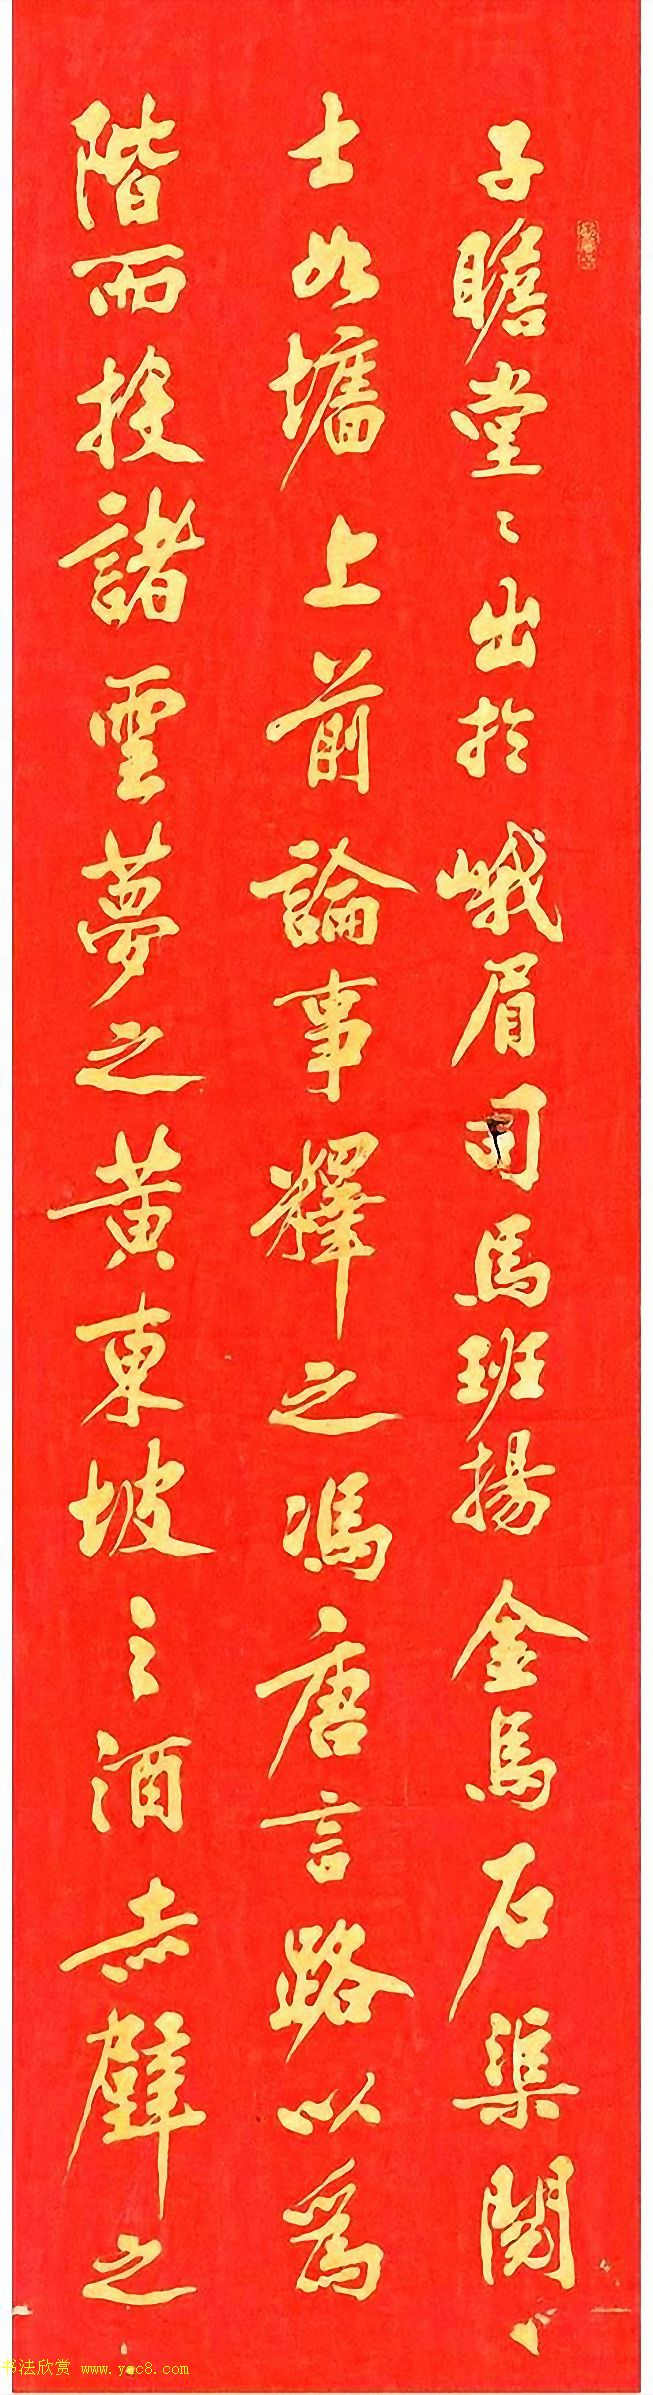 子瞻堂〻出於峨眉司馬班揚金馬石渠閱
士如墻上前論事釋之馮唐言路以爲
階而投諸雲夢之黄東坡之酒赤壁之
书法欣赏 www.yac8.com